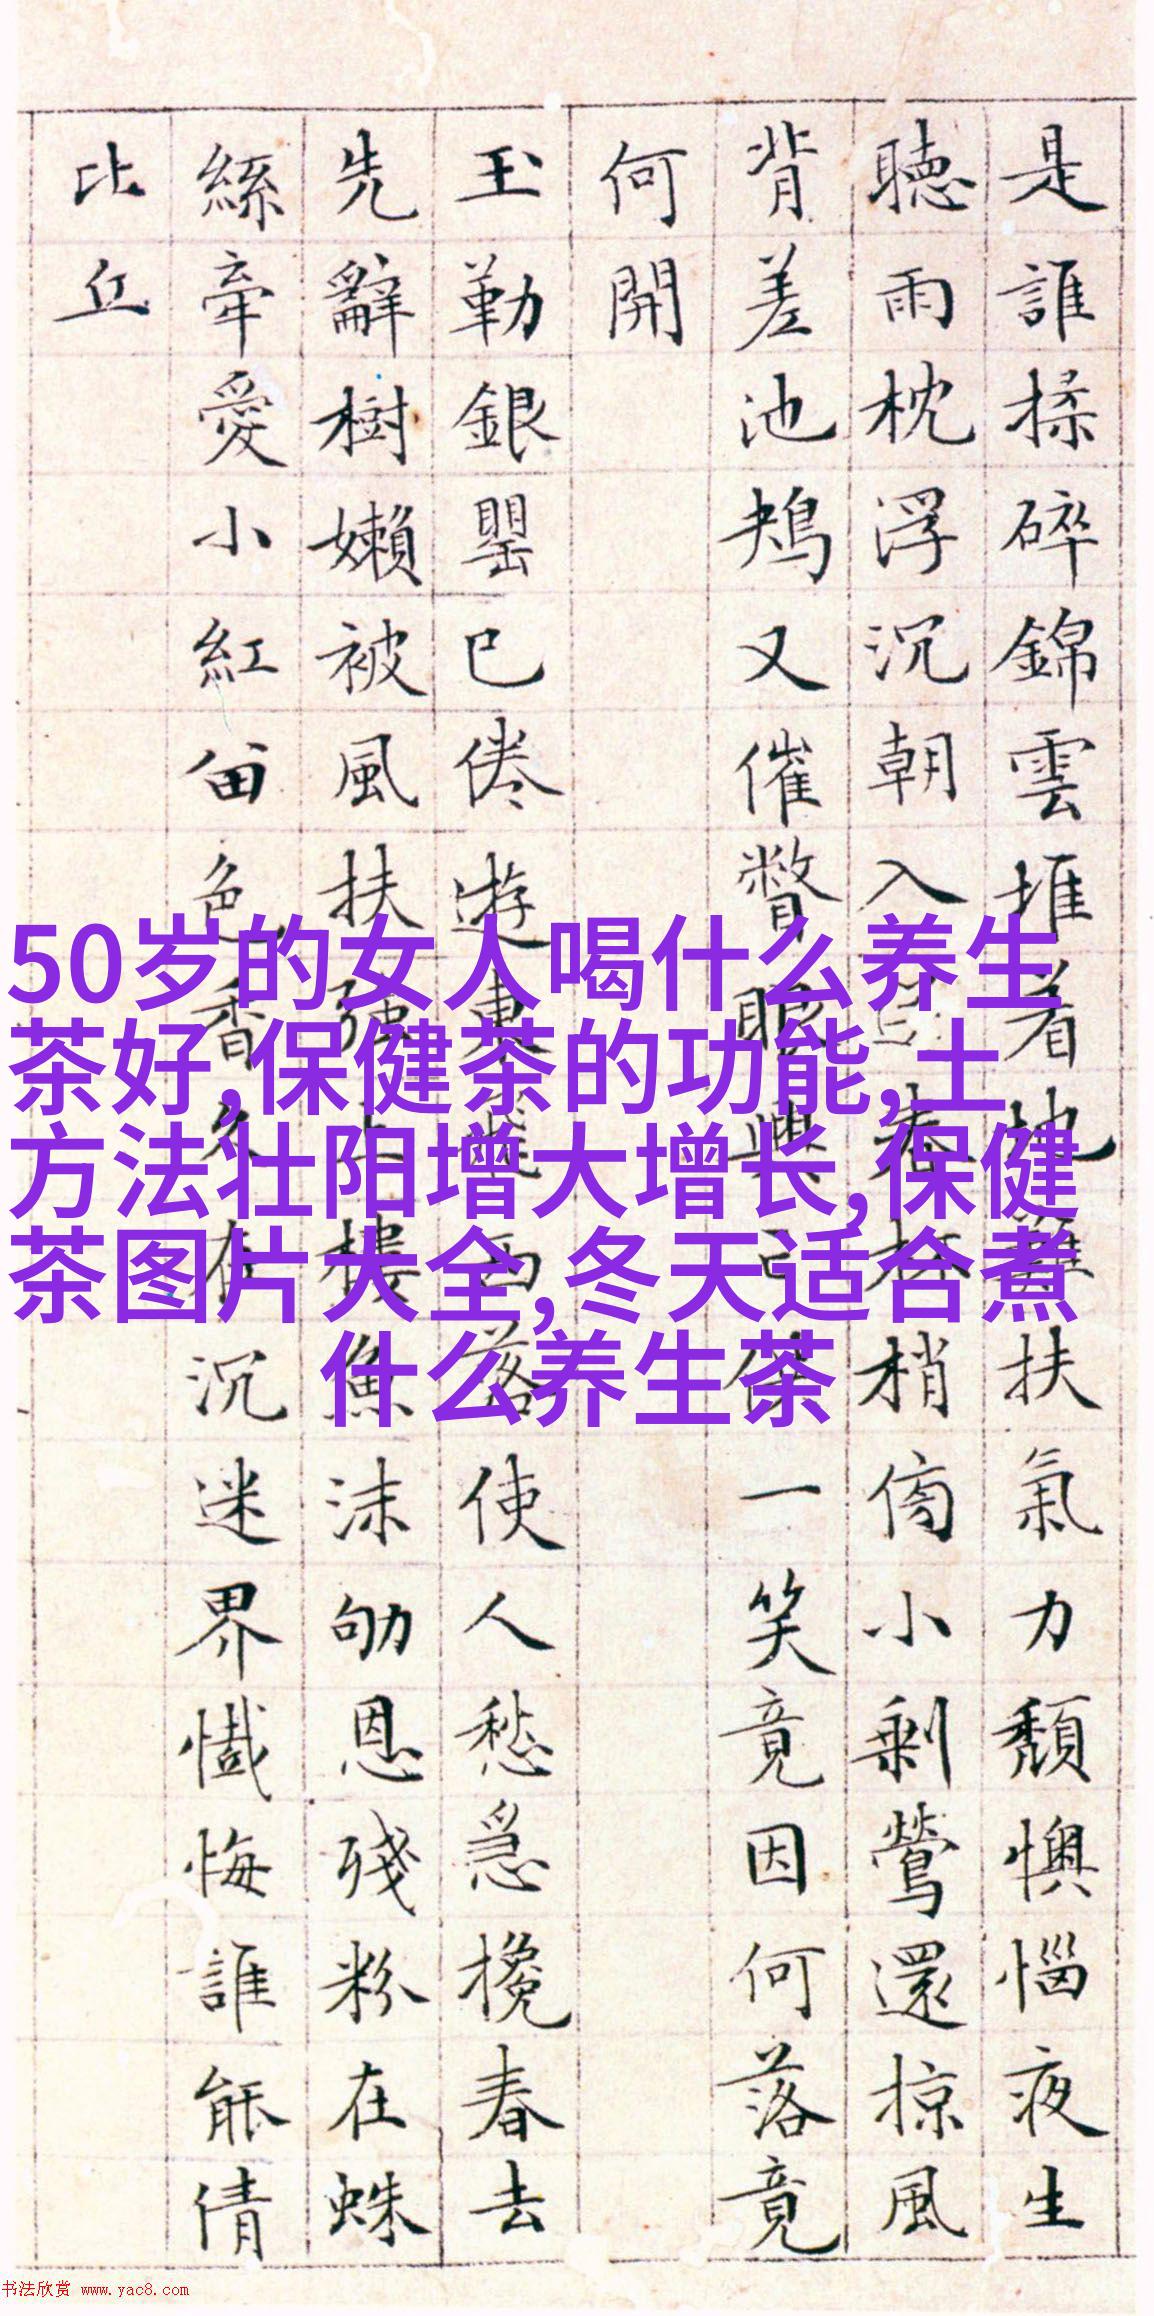 是誰揉碎錦雲堆着地難扶氣力頹懊惱夜生
聽雨枕浮沉朝入春梢小剩鶯還掠風
背差池鳺又催瞥眼興亡供一笑竟因何落竟
何開
玉勒銀罌已倦遊東飛西落使人愁急攙春去
先辭樹嬾被風扶強上樓魚沫劬恩殘粉在蛛
絲牽愛小紅留色香久在沉迷界懺悔誰能倩
比丘
50岁的女人喝什么养生
茶好,保健茶的功能,土
方法壮阳增大增长,保健
茶图片大全,冬天适合煮
什么养生茶
书法欣赏 www.yac8.com